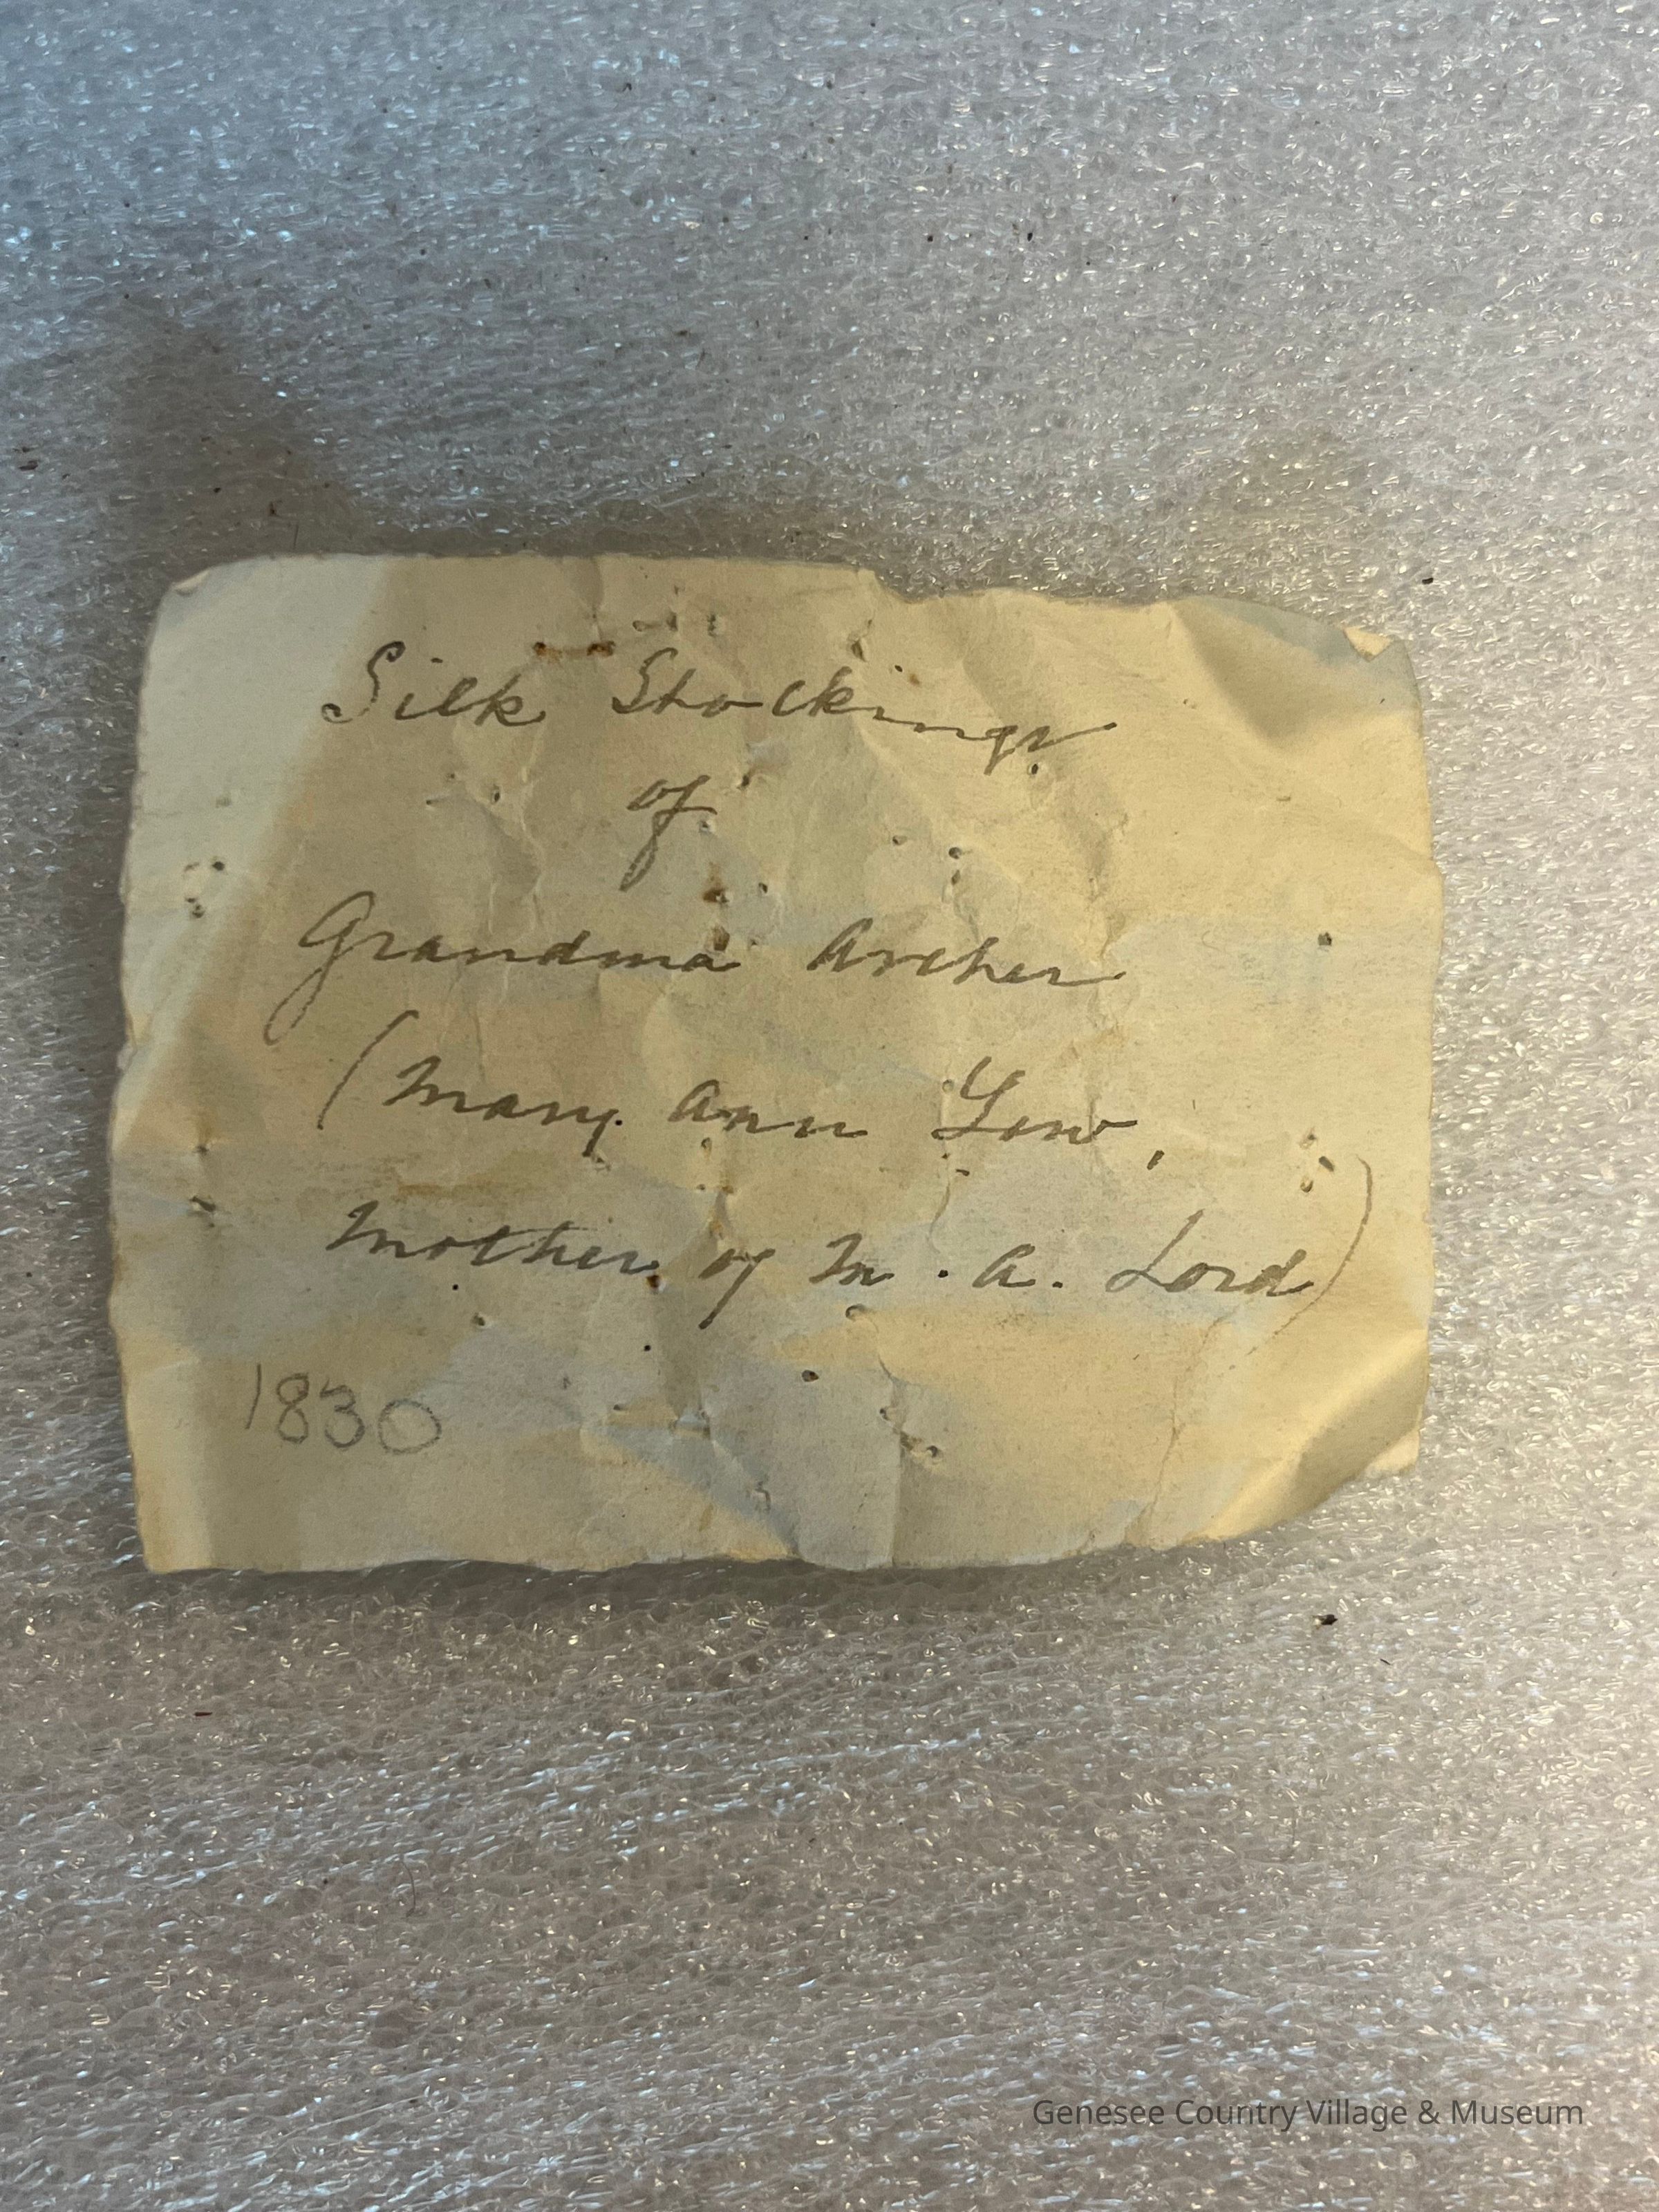 Silk Stockings
of
Grandma Archer
(Mary Ann Low,
Mother of M. A. Lord)
1830
Genesee Country Village & Museum